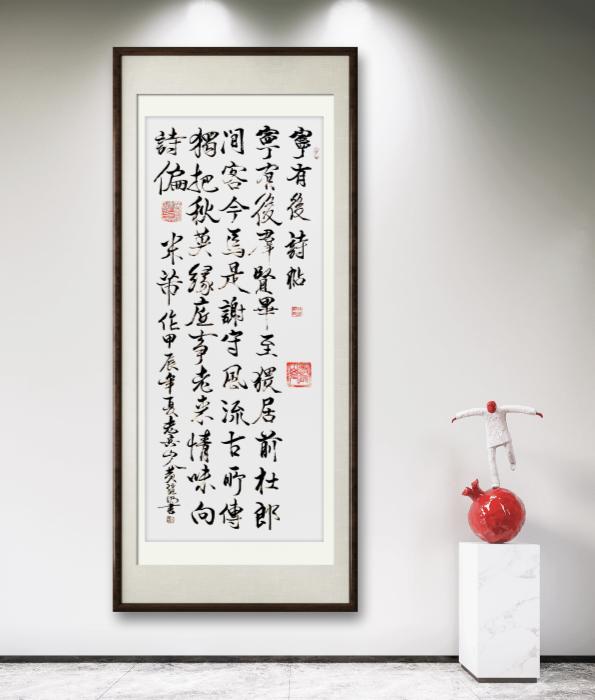 寧有後詩帖
寧有後群賢畢至猥居前杜郎
間客今焉是謝守風流古所傳
獨把秋英緣底事老來情味向
詩偏 米芾作甲辰年夏 黄 书